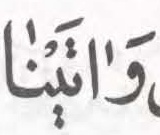 وَاٰتَيْنٰا